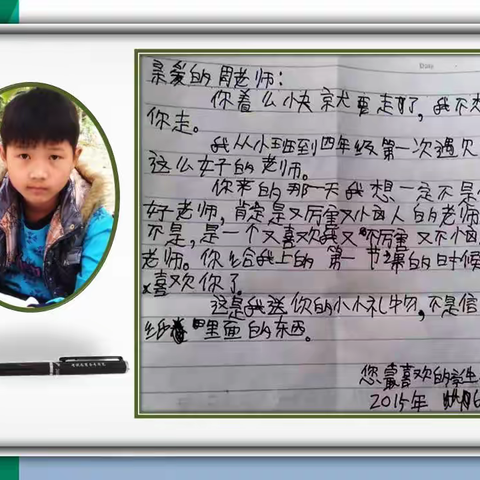 亲爱的周老师：
你着么快就要走了，我不想
你走。
我从小班到四年级第一次遇
这么好的老师。
你来的那一天我想一定不是
好老师，肯定是又厉害又凶人的老师
不是，是一个又喜欢我又不厉害又不凶
老师。你给我上的第一节课的时候
喜欢你了。
这是我送你的小小礼物，不是信
里面的东西。
您最喜欢的学生
2015年